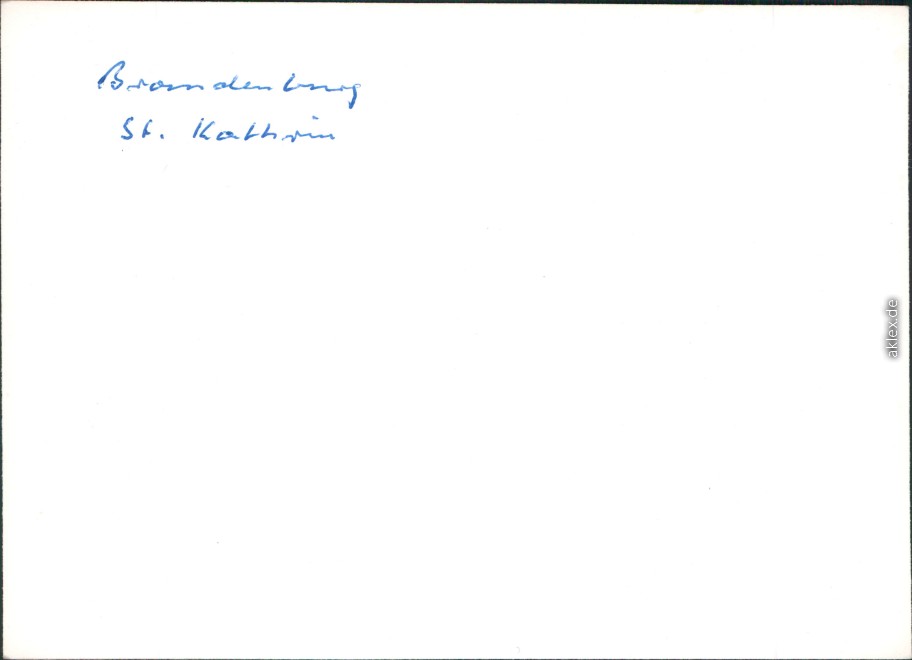 Brandenburg
St. Kathrin
aklex.de